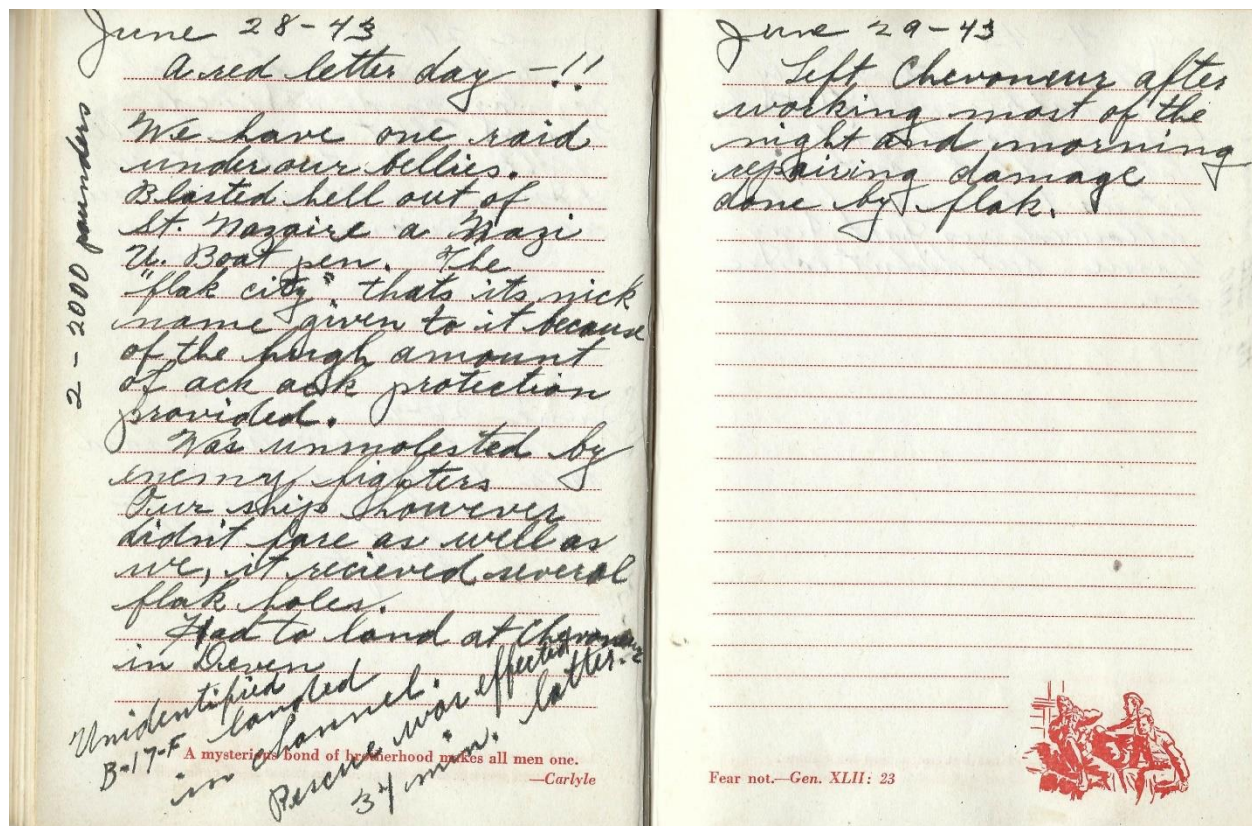 June 28-43
A red letter day -!!
We have one raid
under our bellies.
Blasted hell out of
St. Nazaire a Nazi
U. Boat pen. The
"flak city" thats its nick
name given to it because
of the hugh amount
of ack ack protection
provided.
Was unmolested by
enemy fighters
Our ship however
didn't fare as well as
we, it recieved several
flak holes.
Had to land at Chevoneur
in Deven
Unidentified
B-17-F landed
in channel.
Rescue was effected
34 min. latter.
2-2000 pounders
A mysterious bond of brotherhood makes all men one.
—Carlyle
June 29-43
Left Chevoneur after
working most of the
night and morning
repairing damage
done by flak.
Fear not.—Gen. XLII: 23